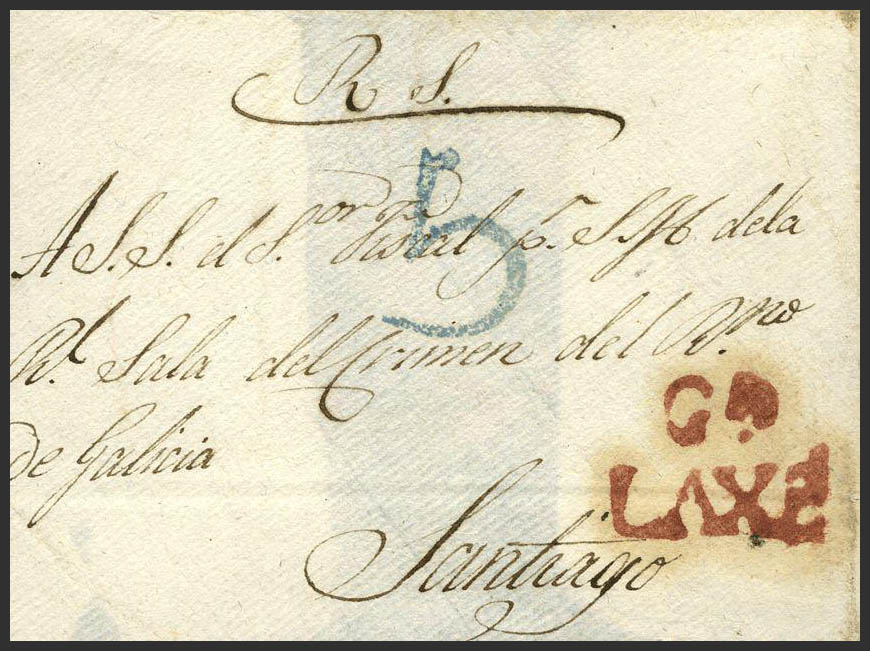 R S.
5
A S.S. el S.or Fiscal p.r S.M. dela
R.l Sala del Crimen del R.no
de Galicia
Gª
LAXE
Santiago